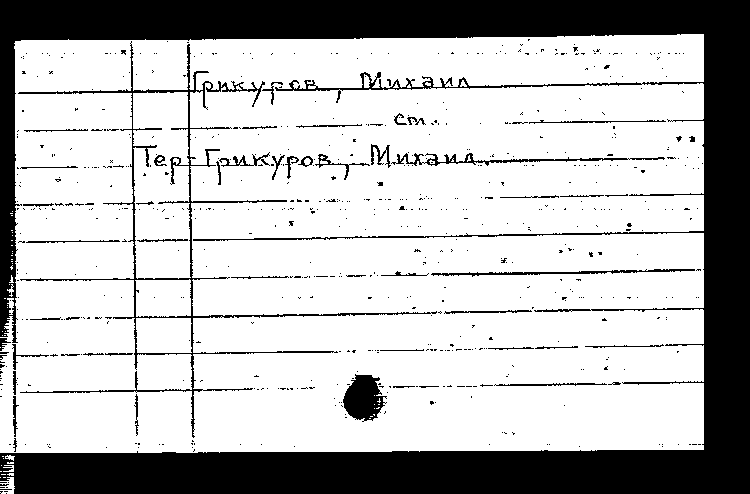 Грикуров, Михаил
ст.
Тер-Грикуров, Михаил.